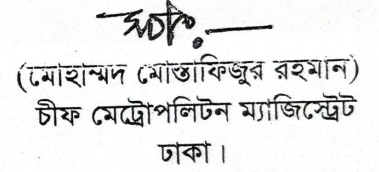 স্বাঃ-
(মোহাম্মদ মোস্তাফিজুর রহমান)
চীফ মেট্রোপলিটন ম্যাজিস্ট্রেট
ঢাকা।